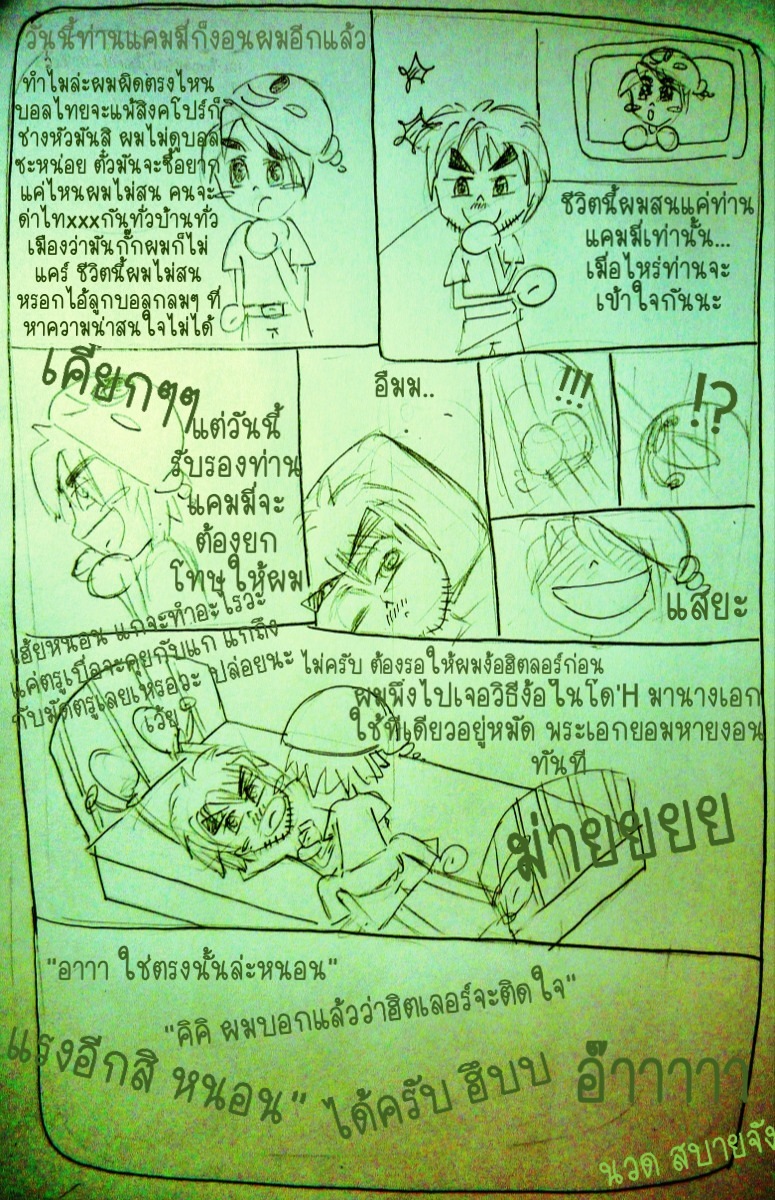 วันนี้ท่านแคมมี่ก็งอนผมอีกแล้ว
ทำไมล่ะผมผิดตรงไหน
บอลไทยจะแพ้สิงคโปร์ก็
ช่างหัวมันสิ ผมไม่ดูบอล
ซะหน่อย ตั๋วมันจะซื้อยาก
แค่ไหนผมไม่สน คนจะ
ด่าไทxxxกันทั่วบ้านทั่ว
เมืองว่ามันกั๊กผมก็ไม่
แคร์ ชีวิตนี้ผมไม่สน
หรอกไอ้ลูกบอลกลมๆ ที่
หาความน่าสนใจไม่ได้
ชีวิตนี้ผมสนแค่ท่าน
แคมมี่เท่านั้น...
เมื่อไหร่ท่านจะ
เข้าใจกันนะ
เคี๊ยกๆๆ
แต่วันนี้
รับรองท่าน
แคมมี่จะ
ต้องยก
โทษให้ผม
อืมม..
!!!
!?
แสยะ
เฮ้ยหนอน แกจะทำอะไรวะ
แค่ตรูเบื่อจะคุยกับแก แกถึง
กับมัดตรูเลยเหรอวะ ปล่อยนะ
เว้ย
ไม่ครับ ต้องรอให้ผมง้อฮิตเลอร์ก่อน
ผมพึ่งไปเจอวิธีง้อในโด'H มานางเอก
ใช้ทีเดียวอยู่หมัด พระเอกยอมหายงอน
ทันที
ม่ายยยย
"อาาา ใช่ตรงนั้นล่ะหนอน"
"คิคิ ผมบอกแล้วว่าฮิตเลอร์จะติดใจ"
แรงอีกสิ หนอน"
ได้ครับ ฮึบบ
อ๊าาาาา
นวด สบายจัง